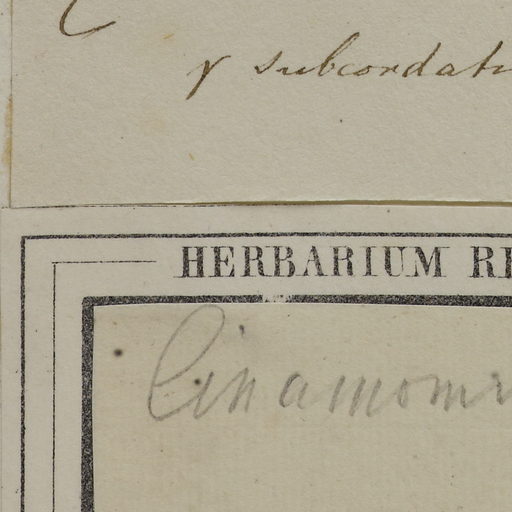 γ subcordat
HERBARIUM RE
Cinamom